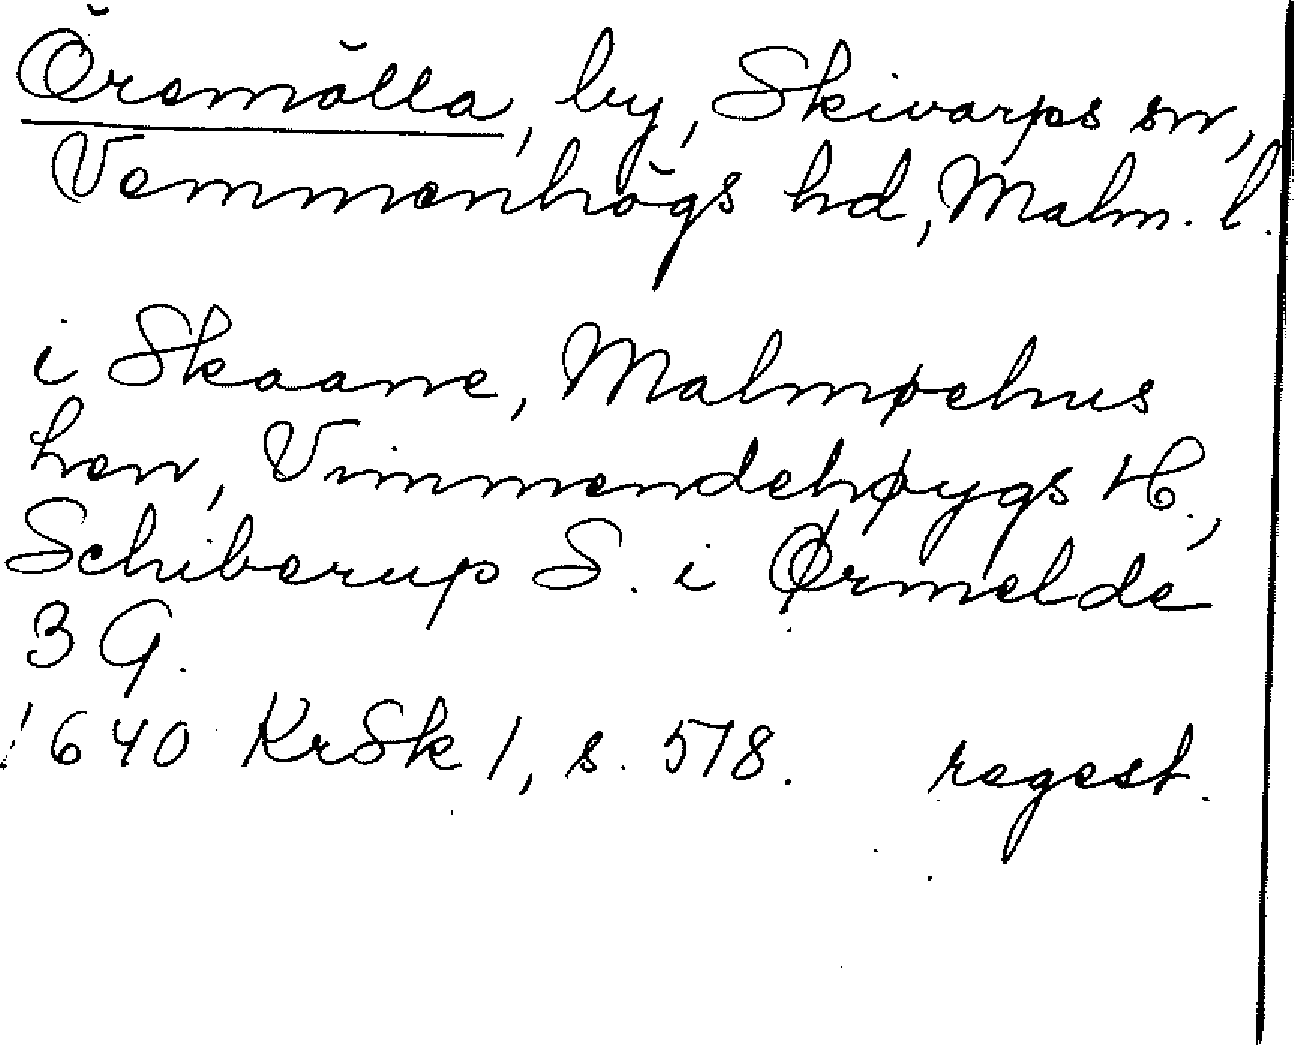 Öremölla, by, Skivarps sn,
Vemmenhögs hd, Malm. l.
i Skaane, Malmøehus
Len, Vimmendehøygs H.,
Schiberup S. i Ørmelde
3 G.
1640 KrSk 1, s. 578. regest.